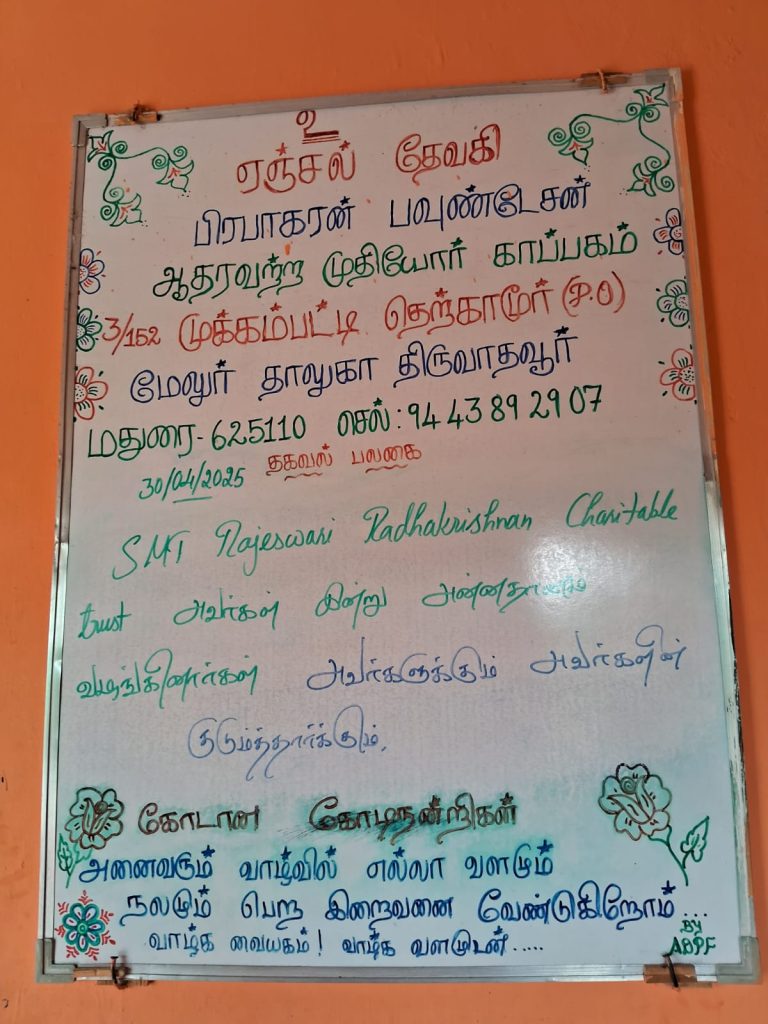 உ
ஏஞ்சல் தேவகி
பிரபாகரன் பவுண்டேசன்
ஆதரவற்ற முதியோர் காப்பகம்
3/152 முக்கம்பட்டி தெற்காமூர் (P.O)
மேலூர் தாலுகா திருவாதவூர்
மதுரை- 625110 செல் : 94 43 89 29 07
தகவல் பலகை
30/04/2025
SMT Rajeswari Radhakrishnan Charitable
trust அவர்கள் இன்று அன்னதானம்
வழங்கினார்கள் அவர்களுக்கும் அவர்களின்
குடும்த்தார்க்கும்.
கோடான கோடிநன்றிகள்
அனைவரும் வாழ்வில் எல்லா வளமும்
நலமும் பெற இறைவனை வேண்டுகிறோம்...
வாழ்க வையகம் ! வாழ்க வளமுடன் .....
BY
ADPF